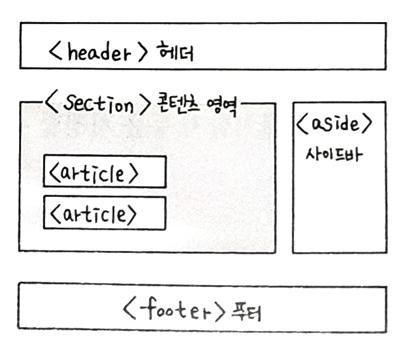 <header> 헤더
<section> 콘텐츠 영역
<article>
<article>
<aside>
사이드바
<footer> 푸터